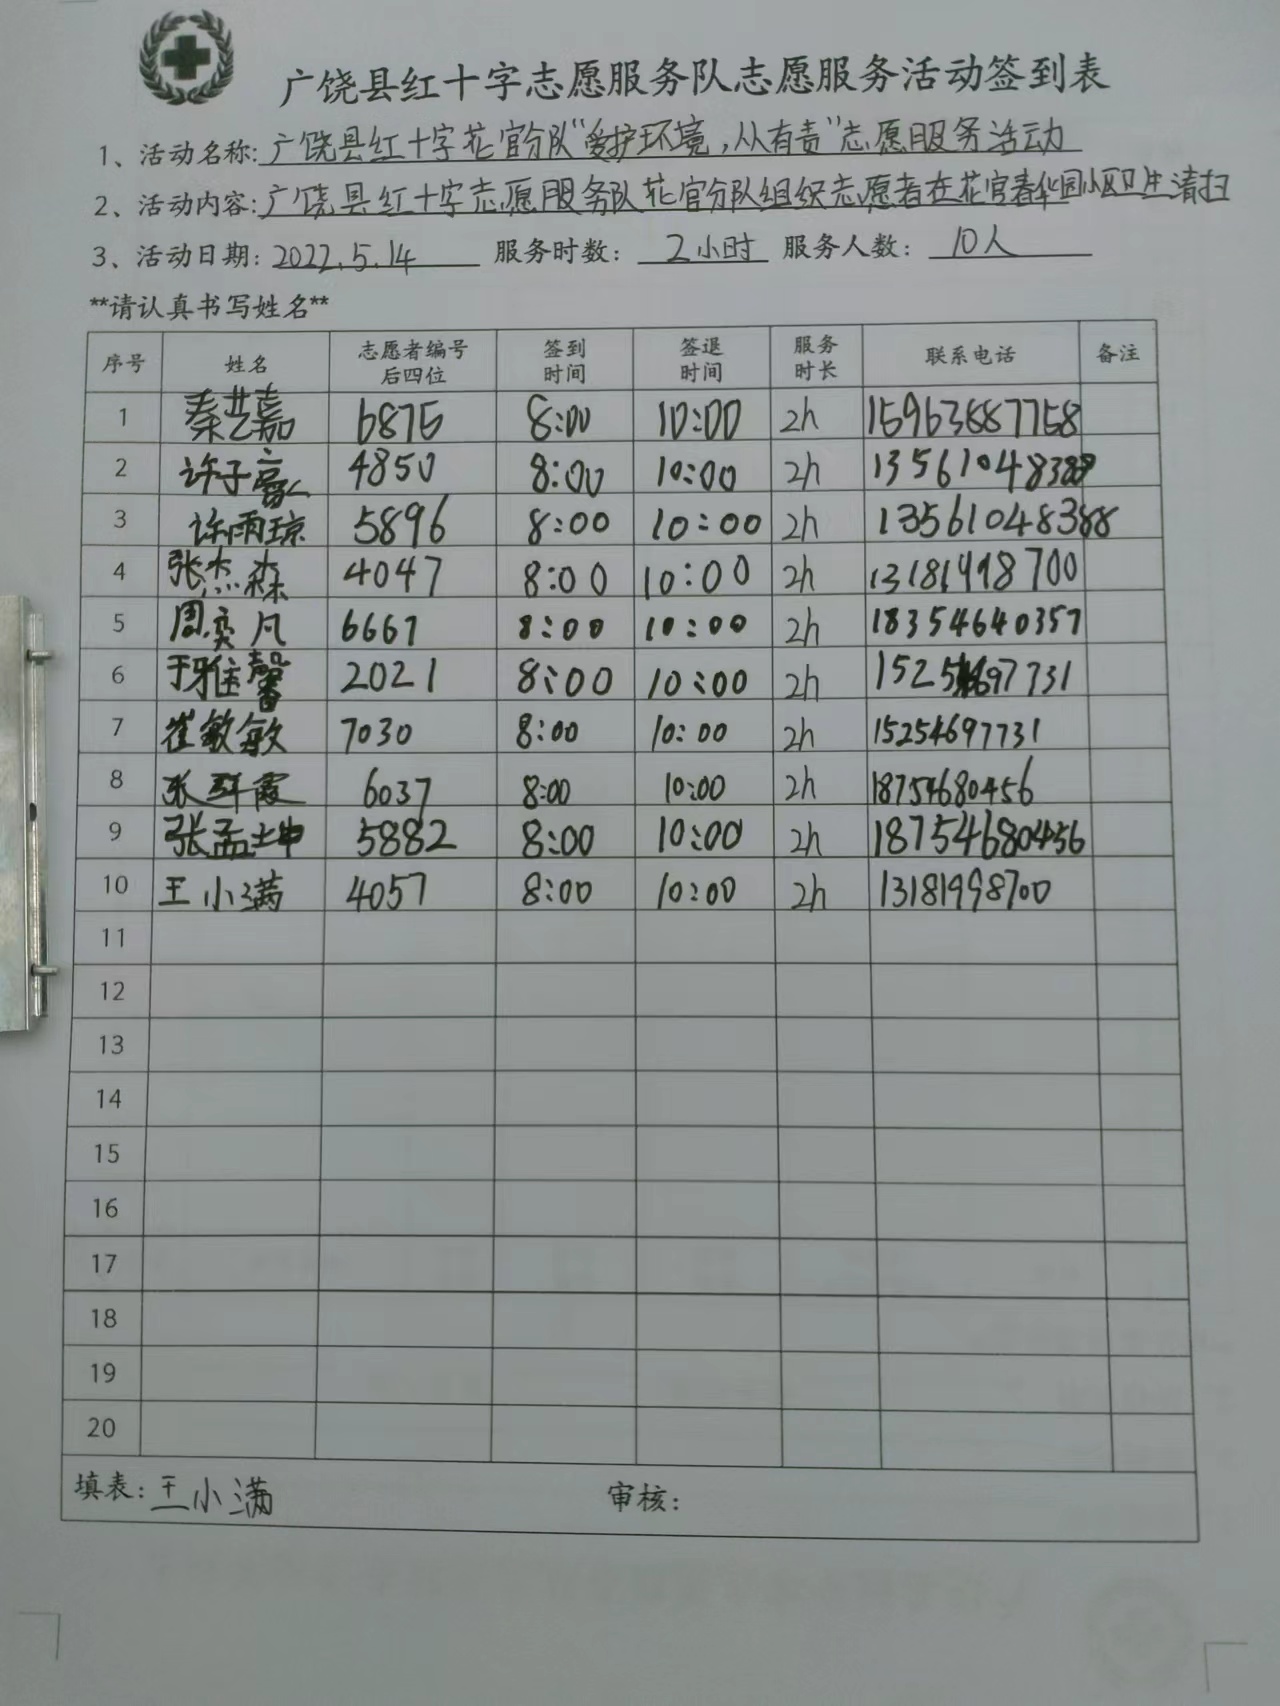 广饶县红十字志愿服务队志愿服务活动签到表
1、活动名称:广饶县红十字花官分队“爱护环境,从有责”志愿服务活动
2、活动内容:广饶县红十字志愿服务队花官分队组织志愿者在花官春华园小区卫生清扫
3、活动日期:2022.5.14 服务时数:2小时 服务人数:10人
**请认真书写姓名**
序号 姓名 志愿者编号后四位 签到时间 签退时间 服务时长 联系电话 备注
1 秦艺嘉 6875 8:00 10:00 2h 15963887758
2 许子 4850 8:00 10:00 2h 13561048388
3 许雨琼 5896 8:00 10:00 2h 13561048388
4 张杰森 4047 8:00 10:00 2h 13181998700
5 周奕凡 6667 8:00 10:00 2h 18354640357
6 于雅馨 2021 8:00 10:00 2h 15254697731
7 崔敏敏 7030 8:00 10:00 2h 15254697731
8 张群霞 6037 8:00 10:00 2h 18754680456
9 张孟坤 5882 8:00 10:00 2h 18754680456
10 王小满 4057 8:00 10:00 2h 13181998700
11
12
13
14
15
16
17
18
19
20
填表:王小满 审核: